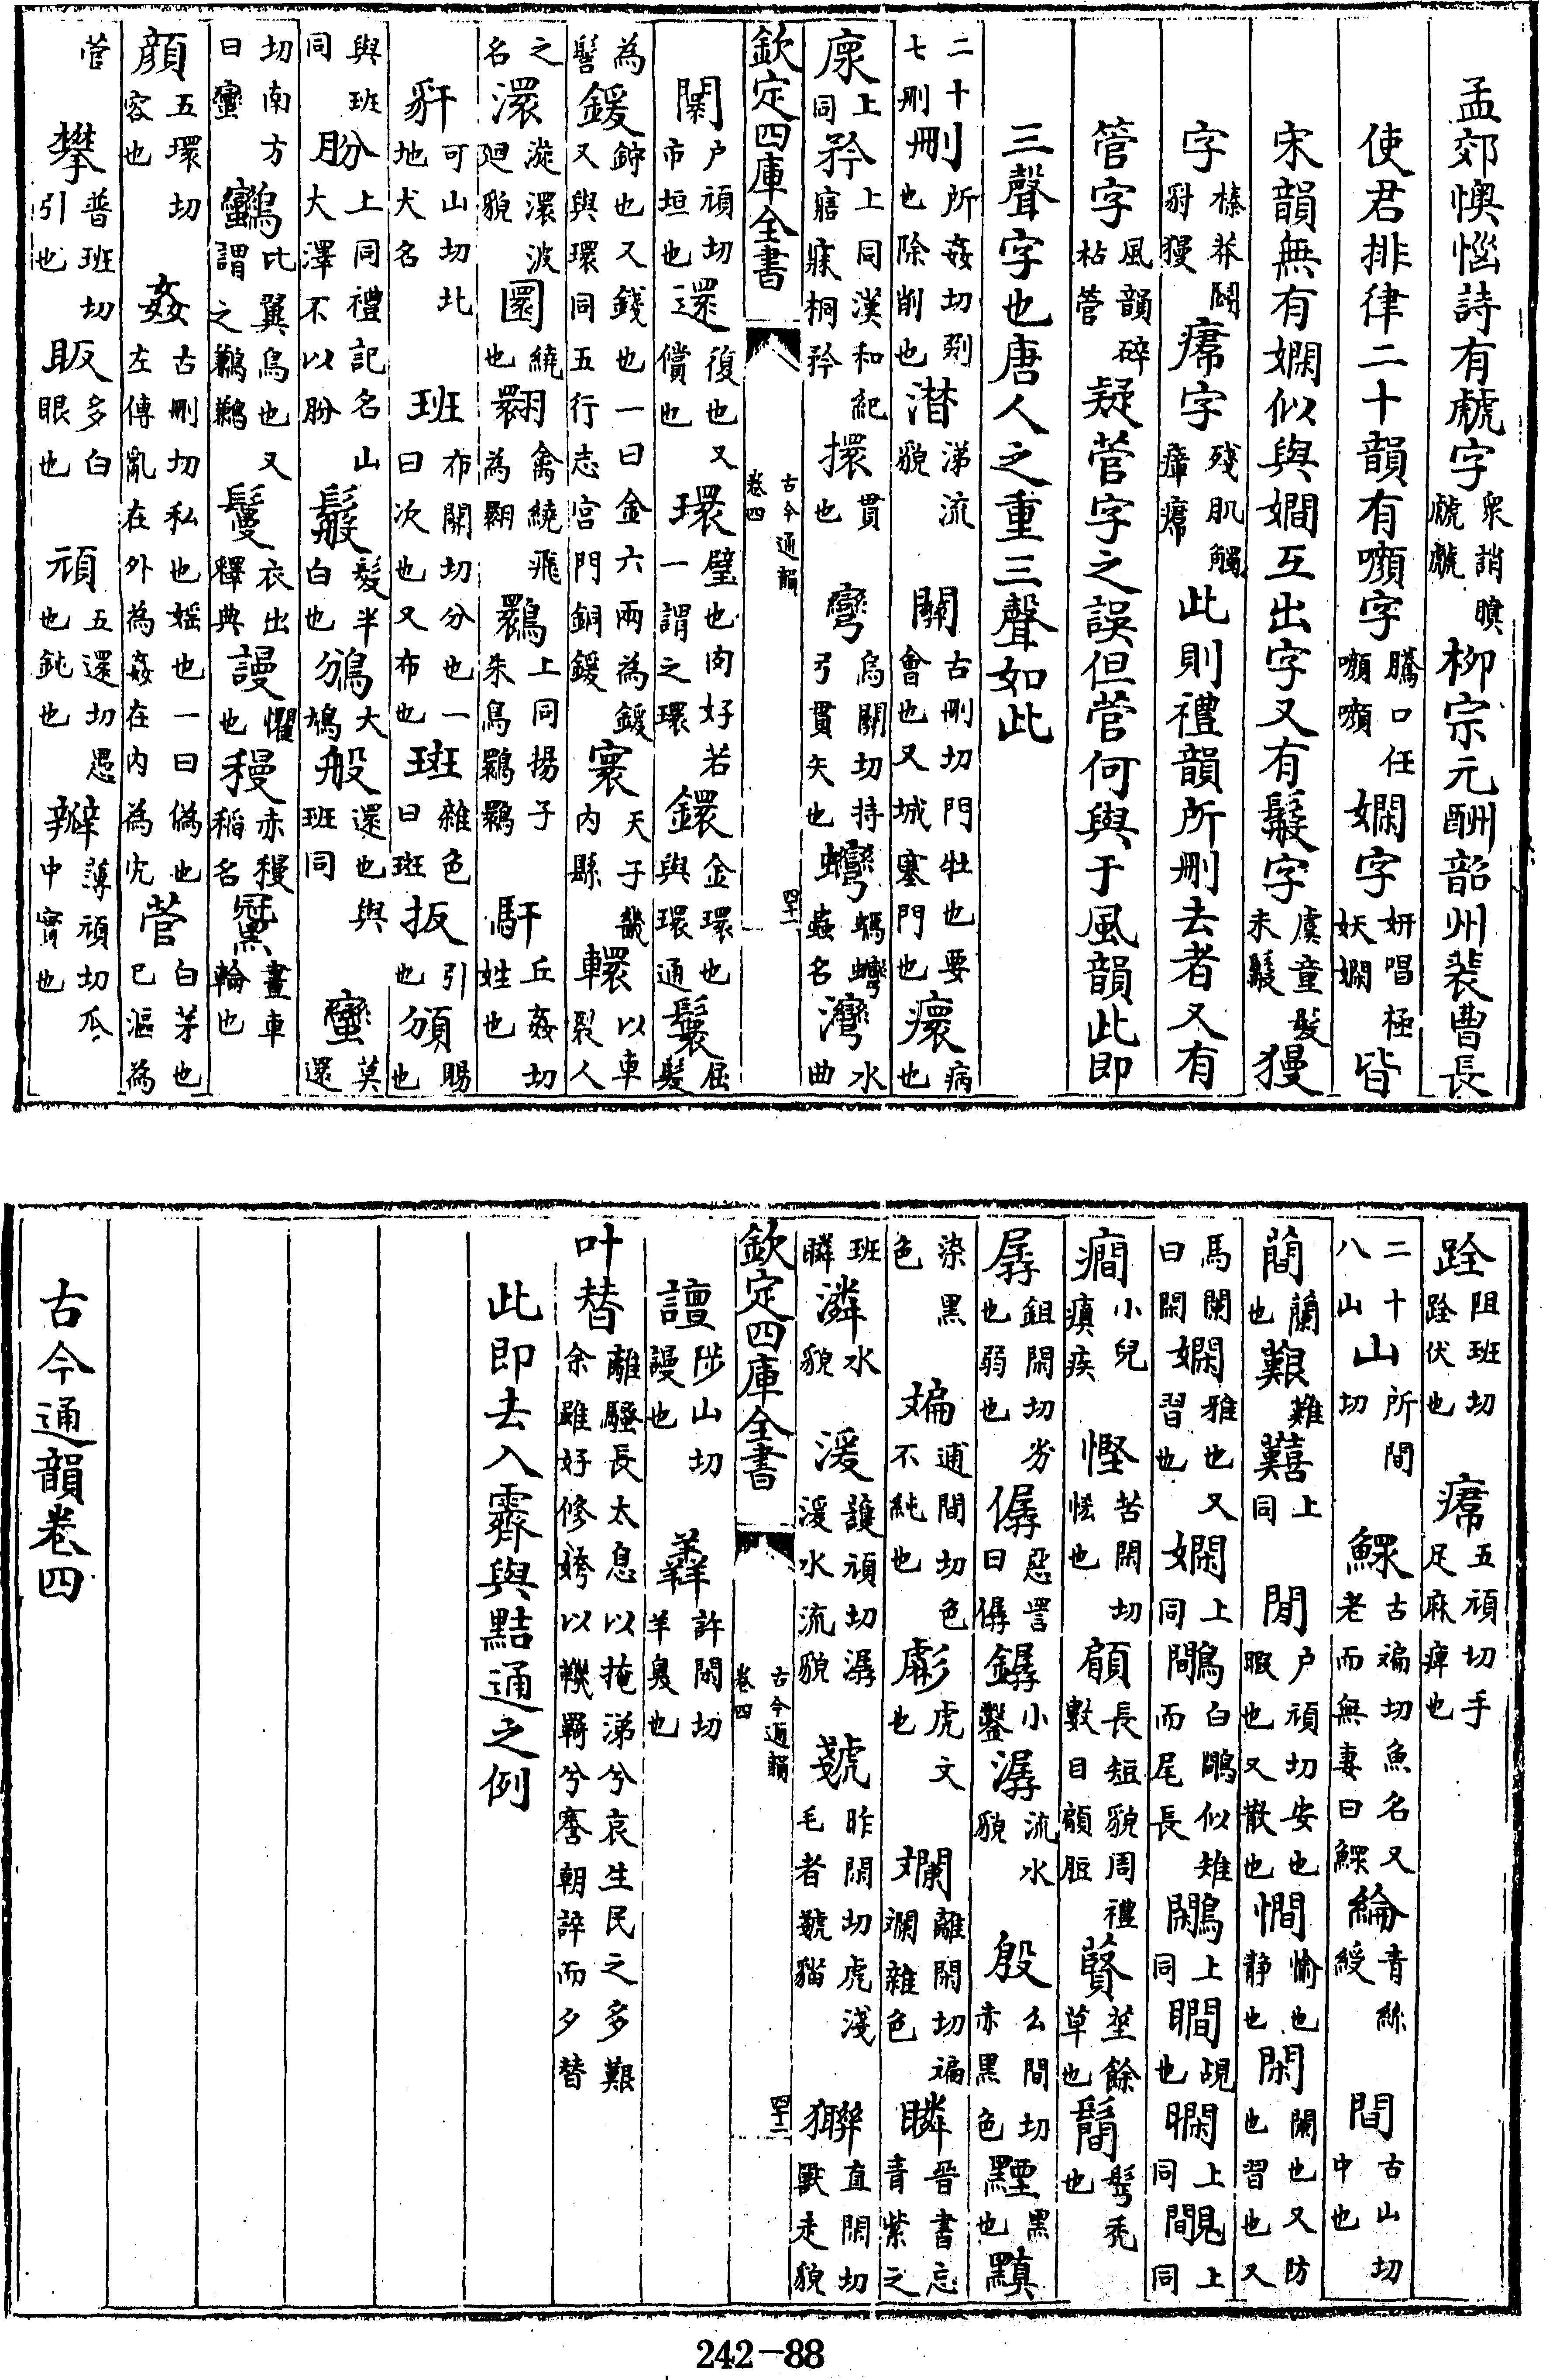 孟郊懊惱詩有虤字衆誚瞋虤虤柳宗元酬韶州裴曹長
使君排律二十韻有嚬字騰口任嚬嚬嫻字妍唱極妖嫻皆
宋韻無有嫻似與嫺互出字又有鬉字虞童髮未鬉獌
字榛莽鬭豺獌㿏字殘肌觸瘴㿏此則禮韻所删去者又有
管字風韻碎枯菅疑菅字之誤但菅何與于風韻此即
三聲字也唐人之重三聲如此
二十七刪刪所姦切剟也除削也潸涕流貌關古刪切門牡也要會也又城塞門也癏病也
㾛上同矜上同漢和紀寤寐桐矜擐貫也彎烏關切持弓貫矢也蠻螞蟃蟲名灣水曲
欽定四庫全書 古今通韻 卷四 四十一
闤户頑切市垣也還復也又償也環璧也肉好若一謂之環鐶金環也與環通鬟屈髮
為髻鍰鋝也又錢也一曰金六兩為鍰又與環同五行志宫門銅鍰寰天子畿内縣轘以車裂人
之名澴漩澴波廻貌圜繞也翾禽繞飛為翾鷼上同揚子朱鳥鷼鷼馯丘姦切姓也
豻可山切北地犬名班布閑切分也一曰次也又布也斑雜色曰斑扳引也頒賜也
與班同朌上同禮記名山大澤不以朌鬉髮半白也鳻大鳩般還也與班同蠻莫還
切南方曰蠻鸞比翼鳥也又謂之鶼鶼鬘衣出釋典謾懼也䅼赤䅼稻名䡬畫車輪也
顔五環切容也姦古刪切私也婬也一曰偽也左傳亂在外為姦在内為宄菅白茅也已漚為
菅攀普班切引也眅多白眼也頑五還切愚也鈍也瓣薄頑切瓜中實也
跧阻班切跧伏也㿏五頑切手足麻痺也
二十八山山所間切鰥古頑切魚名又老而無妻曰鰥綸青絲綬間古山切中也
蕳蘭也艱難囏上同閒户頑切安也暇也又散也憪愉也静也閑闌也又防也習也又
馬闌曰閑嫻雅也又習也嫺上同鷴白鷴似雉而尾長鷼上同瞯覘也瞷上同覸上同
癎小兒瘨疾慳苦閑切恡也顅長短貌周禮數目顅脰藖莝餘草也鬜髩秃也
孱鉏閑切劣也弱也僝惡詈曰僝鏟小鑿潺流水貌殷幺間切赤黑色黫黑也黰
染黑色斒逋間切色不純也彪虎文也斕離閑切斒斕雜色瞵晉書忘青紫之
班瞵潾水貌湲護頑切潺湲水流貌虥昨閑切虎淺毛者虥貓獑直閑切獸走貌
欽定四庫全書 古今通韻 卷四 四十二
譠陟山切謾也羴許閑切羊臭也
叶替離騷長太息以掩涕兮哀生民之多艱余雖好修姱以鞿羇兮謇朝誶而夕替
此即去入霽與黠通之例
古今通韻卷四
242-88